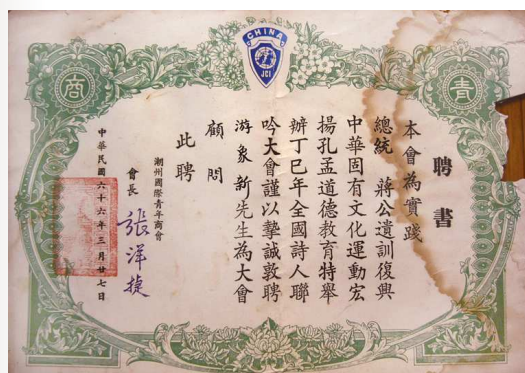 CHINA
JCI
商
青
聘書
本會為實踐
總統　蔣公遺訓復興
中華固有文化運動宏
揚孔孟道德教育特舉
辦丁巳年全國詩人聯
吟大會謹以摯誠敦聘
游象新先生為大會
顧問
此聘
潮州國際青年商會
會長　張洋捷
中華民國六十六年三月廿七日